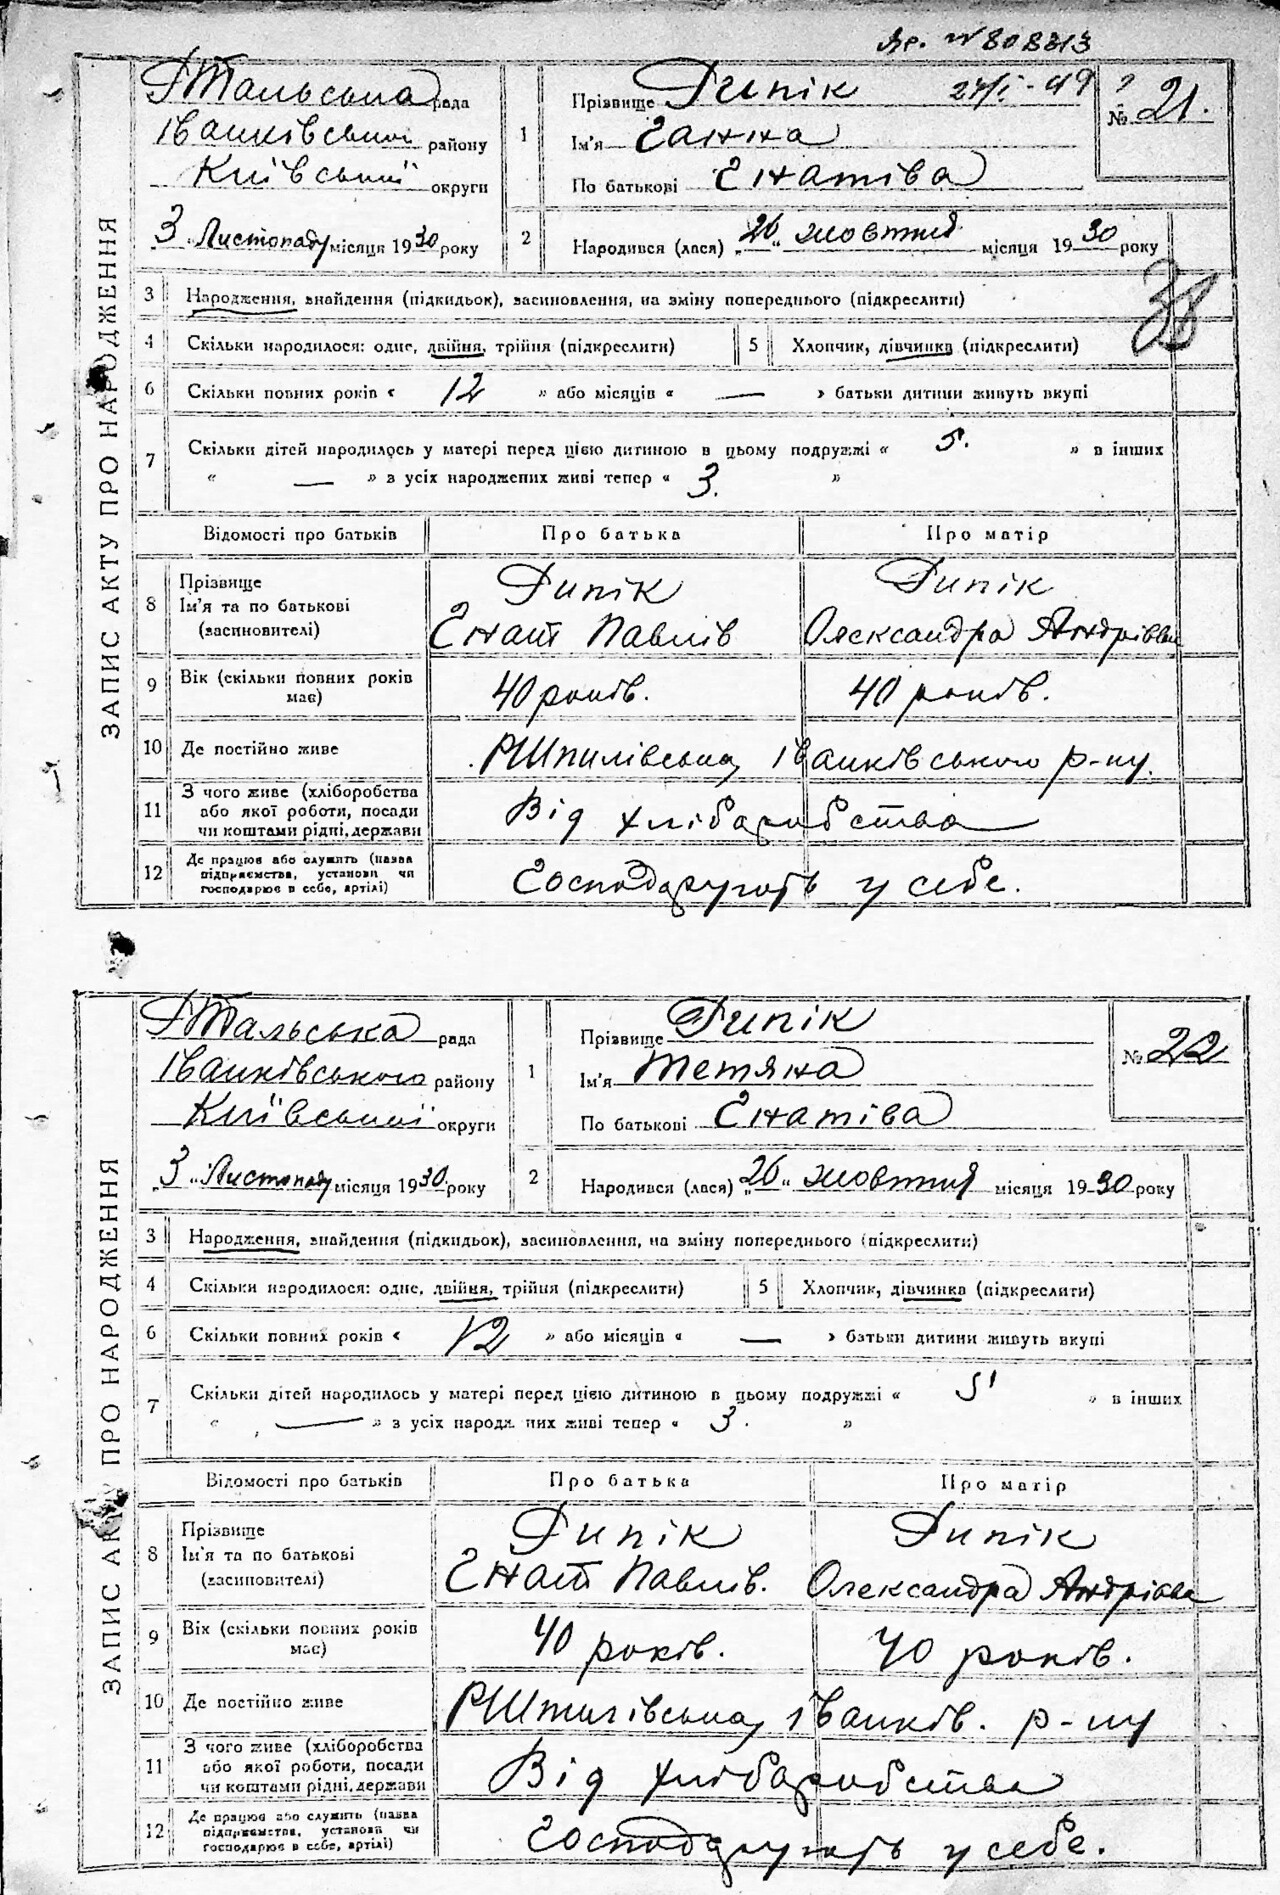 № 808313
Тальська рада
Іванківського району
Київської округи
3 „Листопаду місяця 1930 року
1
Прізвище Гипік 27/I-49
Ім'я Ганна
По батькові Гнатіва
№ 21.
2
Народився (лася) „26“ жовтня місяця 1930 року
38
ЗАПИС АКТУ ПРО НАРОДЖЕННЯ
3 Народження, знайдення (підкидьок), засиновлення, на зміну попереднього (підкреслити)
4 Скільки народилося: одне, двійня, трійня (підкреслити)
5 Хлопчик, дівчинка (підкреслити)
6 Скільки повних років « 12 » або місяців « — » батьки дитини живуть вкупі
7 Скільки дітей народилось у матері перед цією дитиною в цьому подружжі « 5. » в інших
« — » з усіх народжених живі тепер « 3. »
Відомості про батьків Про батька Про матір
8 Прізвище
Ім'я та по батькові
(засиновителі)
Гипік
Гнат Павлів
Гипік
Олександра Андріївна
9 Вік (скільки повних років
має)
40 років. 40 років.
10 Де постійно живе Шпилівська, Іванківського р-ну.
11 З чого живе (хліборобства
або якої роботи, посади
чи коштами рідні, держави
Від хліборобства
12 Де працює або служить (назва
підприємства, установи чи
господарює в себе, артілі)
Господарують у себе.
Тальська рада
Іванківського району
Київської округи
„3 „Листопаду місяця 1930 року
1
Прізвище Гипік
Ім'я Тетяна
По батькові Гнатіва
№ 22
2
Народився (лася) „26“ жовтня місяця 1930 року
ЗАПИС АКТУ ПРО НАРОДЖЕННЯ
3 Народження, знайдення (підкидьок), засиновлення, на зміну попереднього (підкреслити)
4 Скільки народилося: одне, двійня, трійня (підкреслити)
5 Хлопчик, дівчинка (підкреслити)
6 Скільки повних років « 12 » або місяців « — » батьки дитини живуть вкупі
7 Скільки дітей народилось у матері перед цією дитиною в цьому подружжі « 5 » в інших
« — » з усіх народж них живі тепер « 3. »
Відомості про батьків Про батька Про матір
8 Прізвище
Ім'я та по батькові
(засиновителі)
Гипік
Гнат Павлів.
Гипік
Олександра Андріївна
9 Вік (скільки повних років
має)
40 років. 40 років.
10 Де постійно живе Шпилівська, Іванків. р-ну
11 З чого живе (хліборобства
або якої роботи, посади
чи коштами рідні, держави
Від хліборобства
12 Де працює або служить (назва
підприємства, установи чи
господарює в себе, артілі)
Господарують у себе.